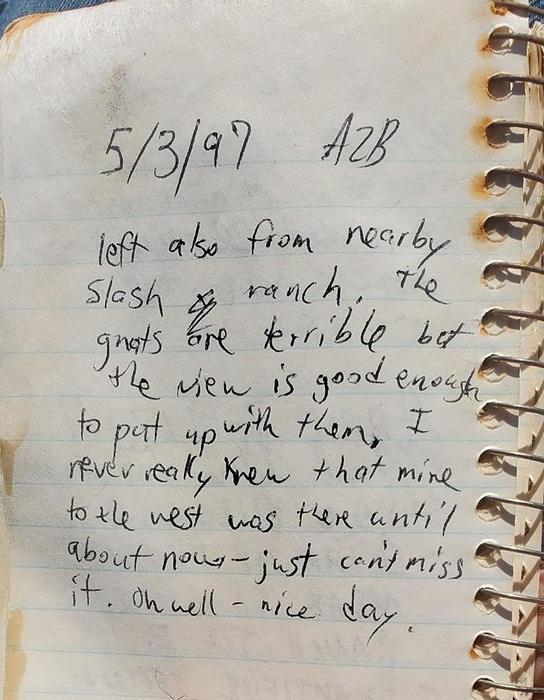 5/3/97 AZB
left also from nearby
Slash ranch. The
gnats are terrible but
the view is good enough
to put up with them. I
never really knew that mine
to the west was there until
about now - just can't miss
it. Oh well - nice day.